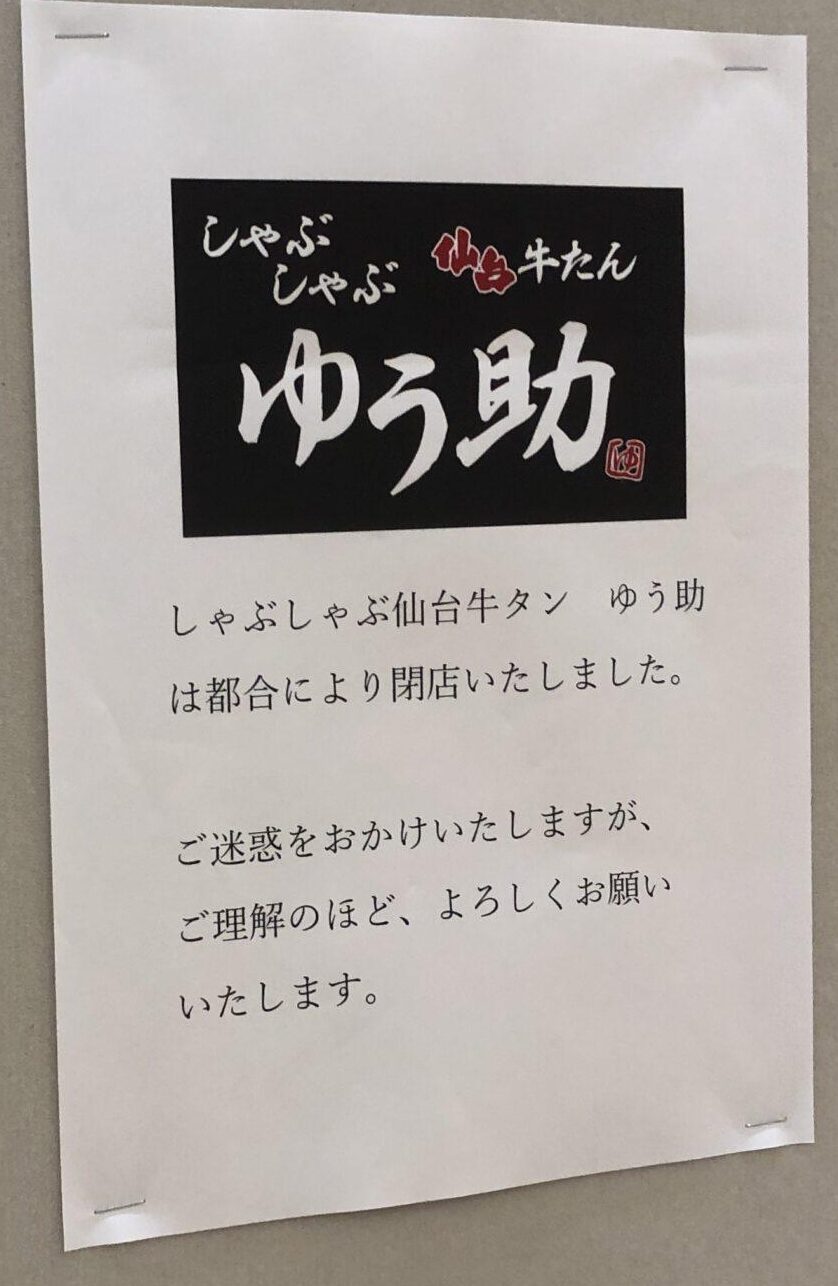 しゃぶ
しゃぶ
仙台牛たん
ゆう助
ゆ
しゃぶしゃぶ仙台牛タン　ゆう助
は都合により閉店いたしました。
ご迷惑をおかけいたしますが、
ご理解のほど、よろしくお願い
いたします。